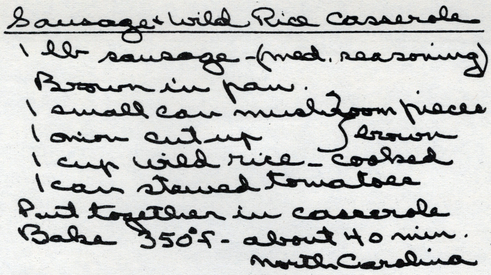 Sausage & Wild Rice Casserole
1 lb sausage - (med. seasoning)
Brown in pan.
1 small can mushroom pieces
1 onion cut up } brown
1 cup wild rice - cooked
1 can stewed tomatoes
Put together in casserole
Bake 350°f - about 40 min.
North Carolina